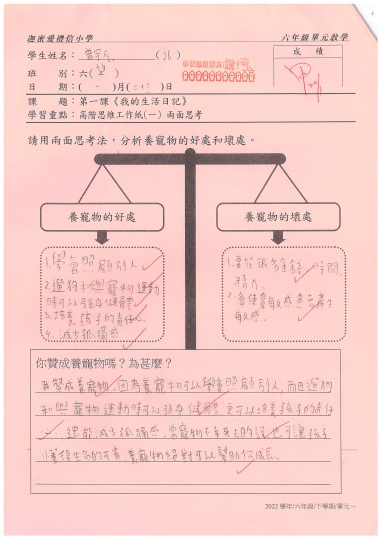 迦密愛禮信小學 六年級單元教學
學生姓名：曾 (16) 成績
班 別：六( ) 甲
日 期：( 一 )月( 二十二 )日
課 題：第一課《我的生活日記》
學習重點：高階思維工作紙(一) 兩面思考
請用兩面思考法，分析養寵物的好處和壞處。
養寵物的好處 養寵物的壞處
1.學會照顧別人
2.遛狗和與寵物運動
時可以強身健體
3.培養孩子的責任心
4.減少孤獨感
1.會花很多金錢、時間
精力。
2.會使對敏感患者產生
敏感。
你贊成養寵物嗎？為甚麼？
我贊成養寵物。因為養寵物可以學會照顧別人，而且遛狗
和與寵物運動時可以強身健體，更可以培養孩子的責任
心，還能減少孤獨感，當寵物不幸死去的話也可讓孩子
懂得生命的可貴，養寵物絕對可以幫助你成長。
2022 學年/六年級/下學期/單元一